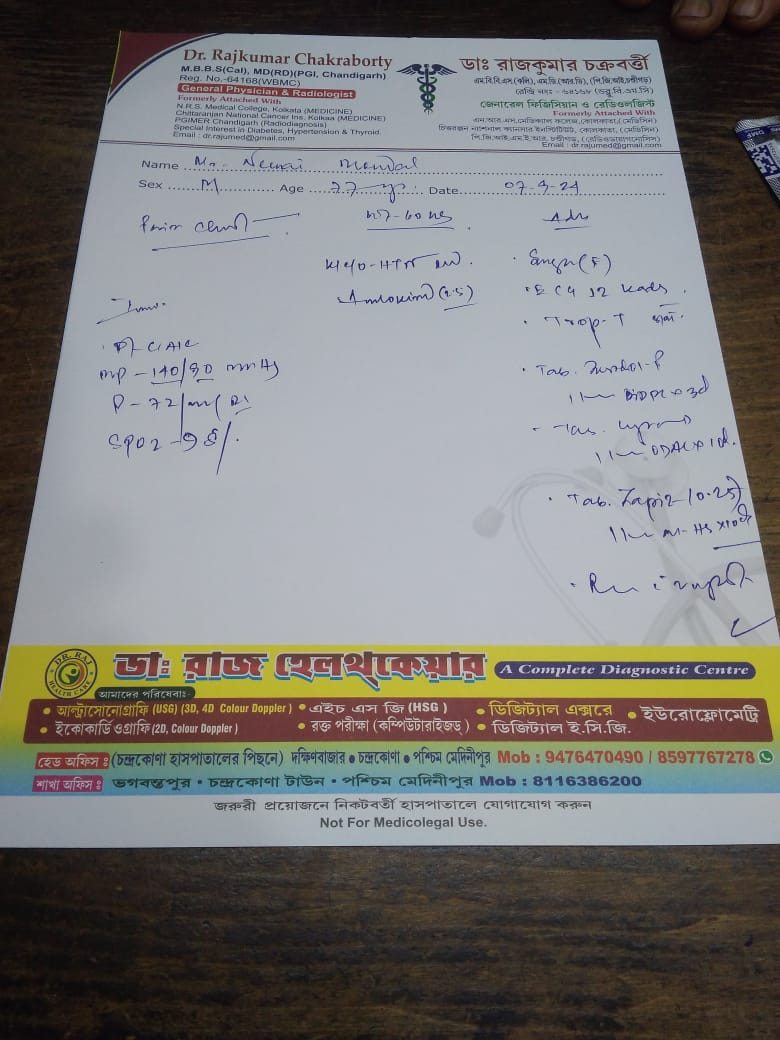 Dr. Rajkumar Chakraborty
M.B.B.S(Cal), MD(RD)(PGI, Chandigarh)
Reg. No.-64168(WBMC)
General Physician & Radiologist
Formerly Attached With
N.R.S. Medical College, Kolkata (MEDICINE)
Chittaranjan National Cancer Ins. Kolkaa (MEDICINE)
PGIMER Chandigarh (Radiodiagnosis)
Special Interest in Diabetes, Hypertension & Thyroid.
Email : dr.rajumed@gmail.com
ডাঃ রাজকুমার চক্রবর্ত্তী
এম.বি.বি.এস.(কলি), এম.ডি(আর.ডি), (পি.জি.আই.চন্ডীগড়)
রেজি নং- ৬৪১৬৮ (ডব্লু.বি.এম.সি)
জেনারেল ফিজিসিয়ান ও রেডিওলজিস্ট
Formerly Attached With
এন.আর.এস.মেডিক্যাল কলেজ,কোলকাতা,(মেডিসিন)
চিত্তরঞ্জন ন্যাশনাল ক্যানসার ইনস্টিটিউট, কোলকাতা, (মেডিসিন)
পি.জি.আই.এম.ই.আর. চন্ডীগড়, (রেডিওডায়াগনোসিস)
Email : dr.rajumed@gmail.com
Name Mr. Nemai Mondal
Sex M Age 77 yr. Date 07-9-24
WT-60 kg Adv
K/C/O-HTN
(2.5)
ECG 12 leads.
Trop-T
BP-140/90 mmHg
P-72/m
SPO2-98%.
Tab.
BDPC x 3d
Tab.
ODAC x 10d.
Tab. Zapiz (0.25)
HS x 10d
DR. RAJ
HEALTH CARE
ডাঃ রাজ হেলথ্‌কেয়ার
A Complete Diagnostic Centre
আমাদের পরিষেবাঃ
• আল্ট্রাসোনোগ্রাফি (USG) (3D, 4D Colour Doppler) • এইচ এস জি (HSG) • ডিজিট্যাল এক্সরে • ইউরোফ্লোমেট্রি
• ইকোকার্ডিওগ্রাফি (2D, Colour Doppler) • রক্ত পরীক্ষা (কম্পিউটারাইজড্) • ডিজিট্যাল ই.সি.জি.
হেড অফিস ঃ (চন্দ্রকোণা হাসপাতালের পিছনে) দক্ষিণবাজার • চন্দ্রকোণা • পশ্চিম মেদিনীপুর Mob : 9476470490 / 8597767278
শাখা অফিস ঃ ভগবন্তপুর • চন্দ্রকোণা টাউন • পশ্চিম মেদিনীপুর Mob : 8116386200
জরুরী প্রয়োজনে নিকটবর্তী হাসপাতালে যোগাযোগ করুন
Not For Medicolegal Use.